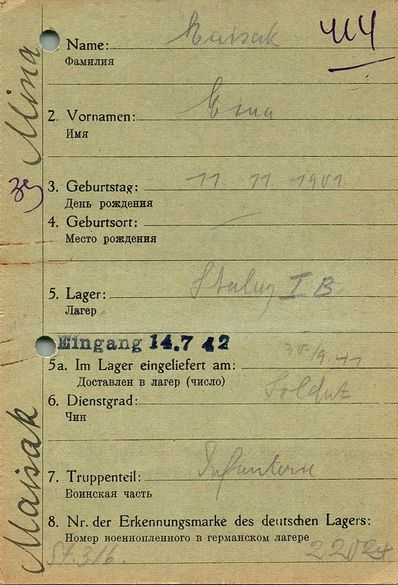 Mina
Maisak
414
39
1. Name:
Фамилия
2. Vornamen:
Имя
3. Geburtstag: 11 11 1901
День рождения
4. Geburtsort: —
Место рождения
5. Lager: Stalag I B
Лагер
Eingang 14.7 42
5a. Im Lager eingeliefert am: 9.41
Доставлен в лагер (число)
6. Dienstgrad: Soldat
Чин
7. Truppenteil: Infanterie
Воинская часть
8. Nr. der Erkennungsmarke des deutschen Lagers:
Номер военнопленного в германском лагере